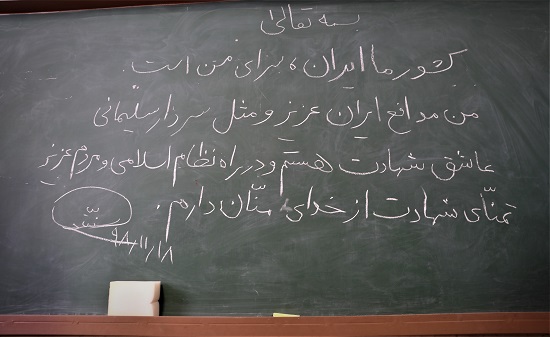 بسمه تعالی
کشور ما ایران، سرای من است.
من مدافع ایران عزیز و مثل سردار سلیمانی
عاشق شهادت هستم و در راه نظام اسلامی و مردم عزیز
تمنّای شهادت از خدای منّان دارم.
۹۸/۱۱/۱۸